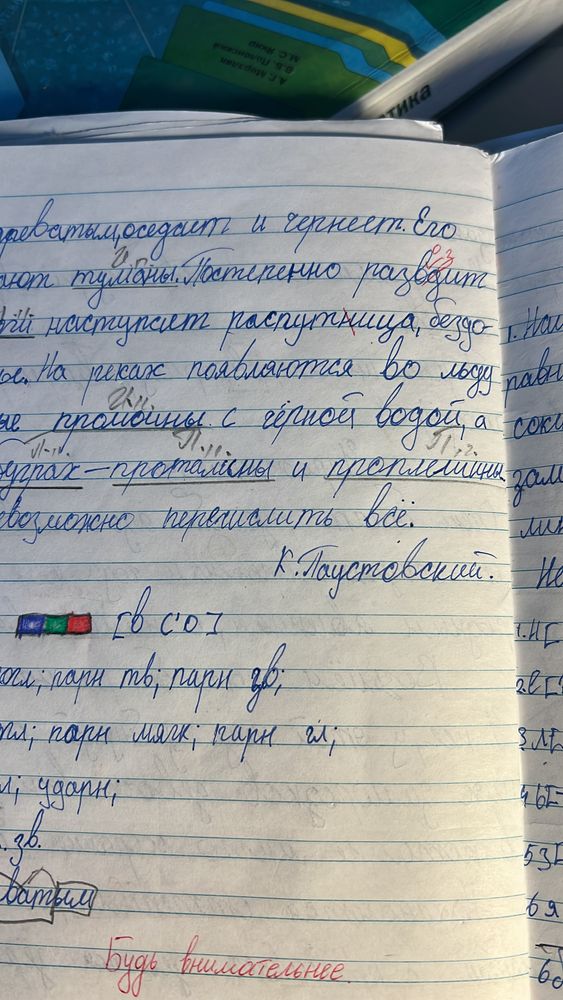 А.Г. Мерзляк
В.Б. Полонский
М.С. Якир
тика
реватым, оседает и чернеет. Его
ают туманы. Постепенно разводит
наступает распутница, бездо-
На реках появляются во льду
ые промоины с чёрной водой, а
буграх – проталины и проплешины.
евозможно перечислить всё.
К. Паустовский.
[в с' о]
огл; парн тв; парн зв;
огл; парн мягк; парн гл;
л; ударн;
зв.
ватым
Будь внимательнее.